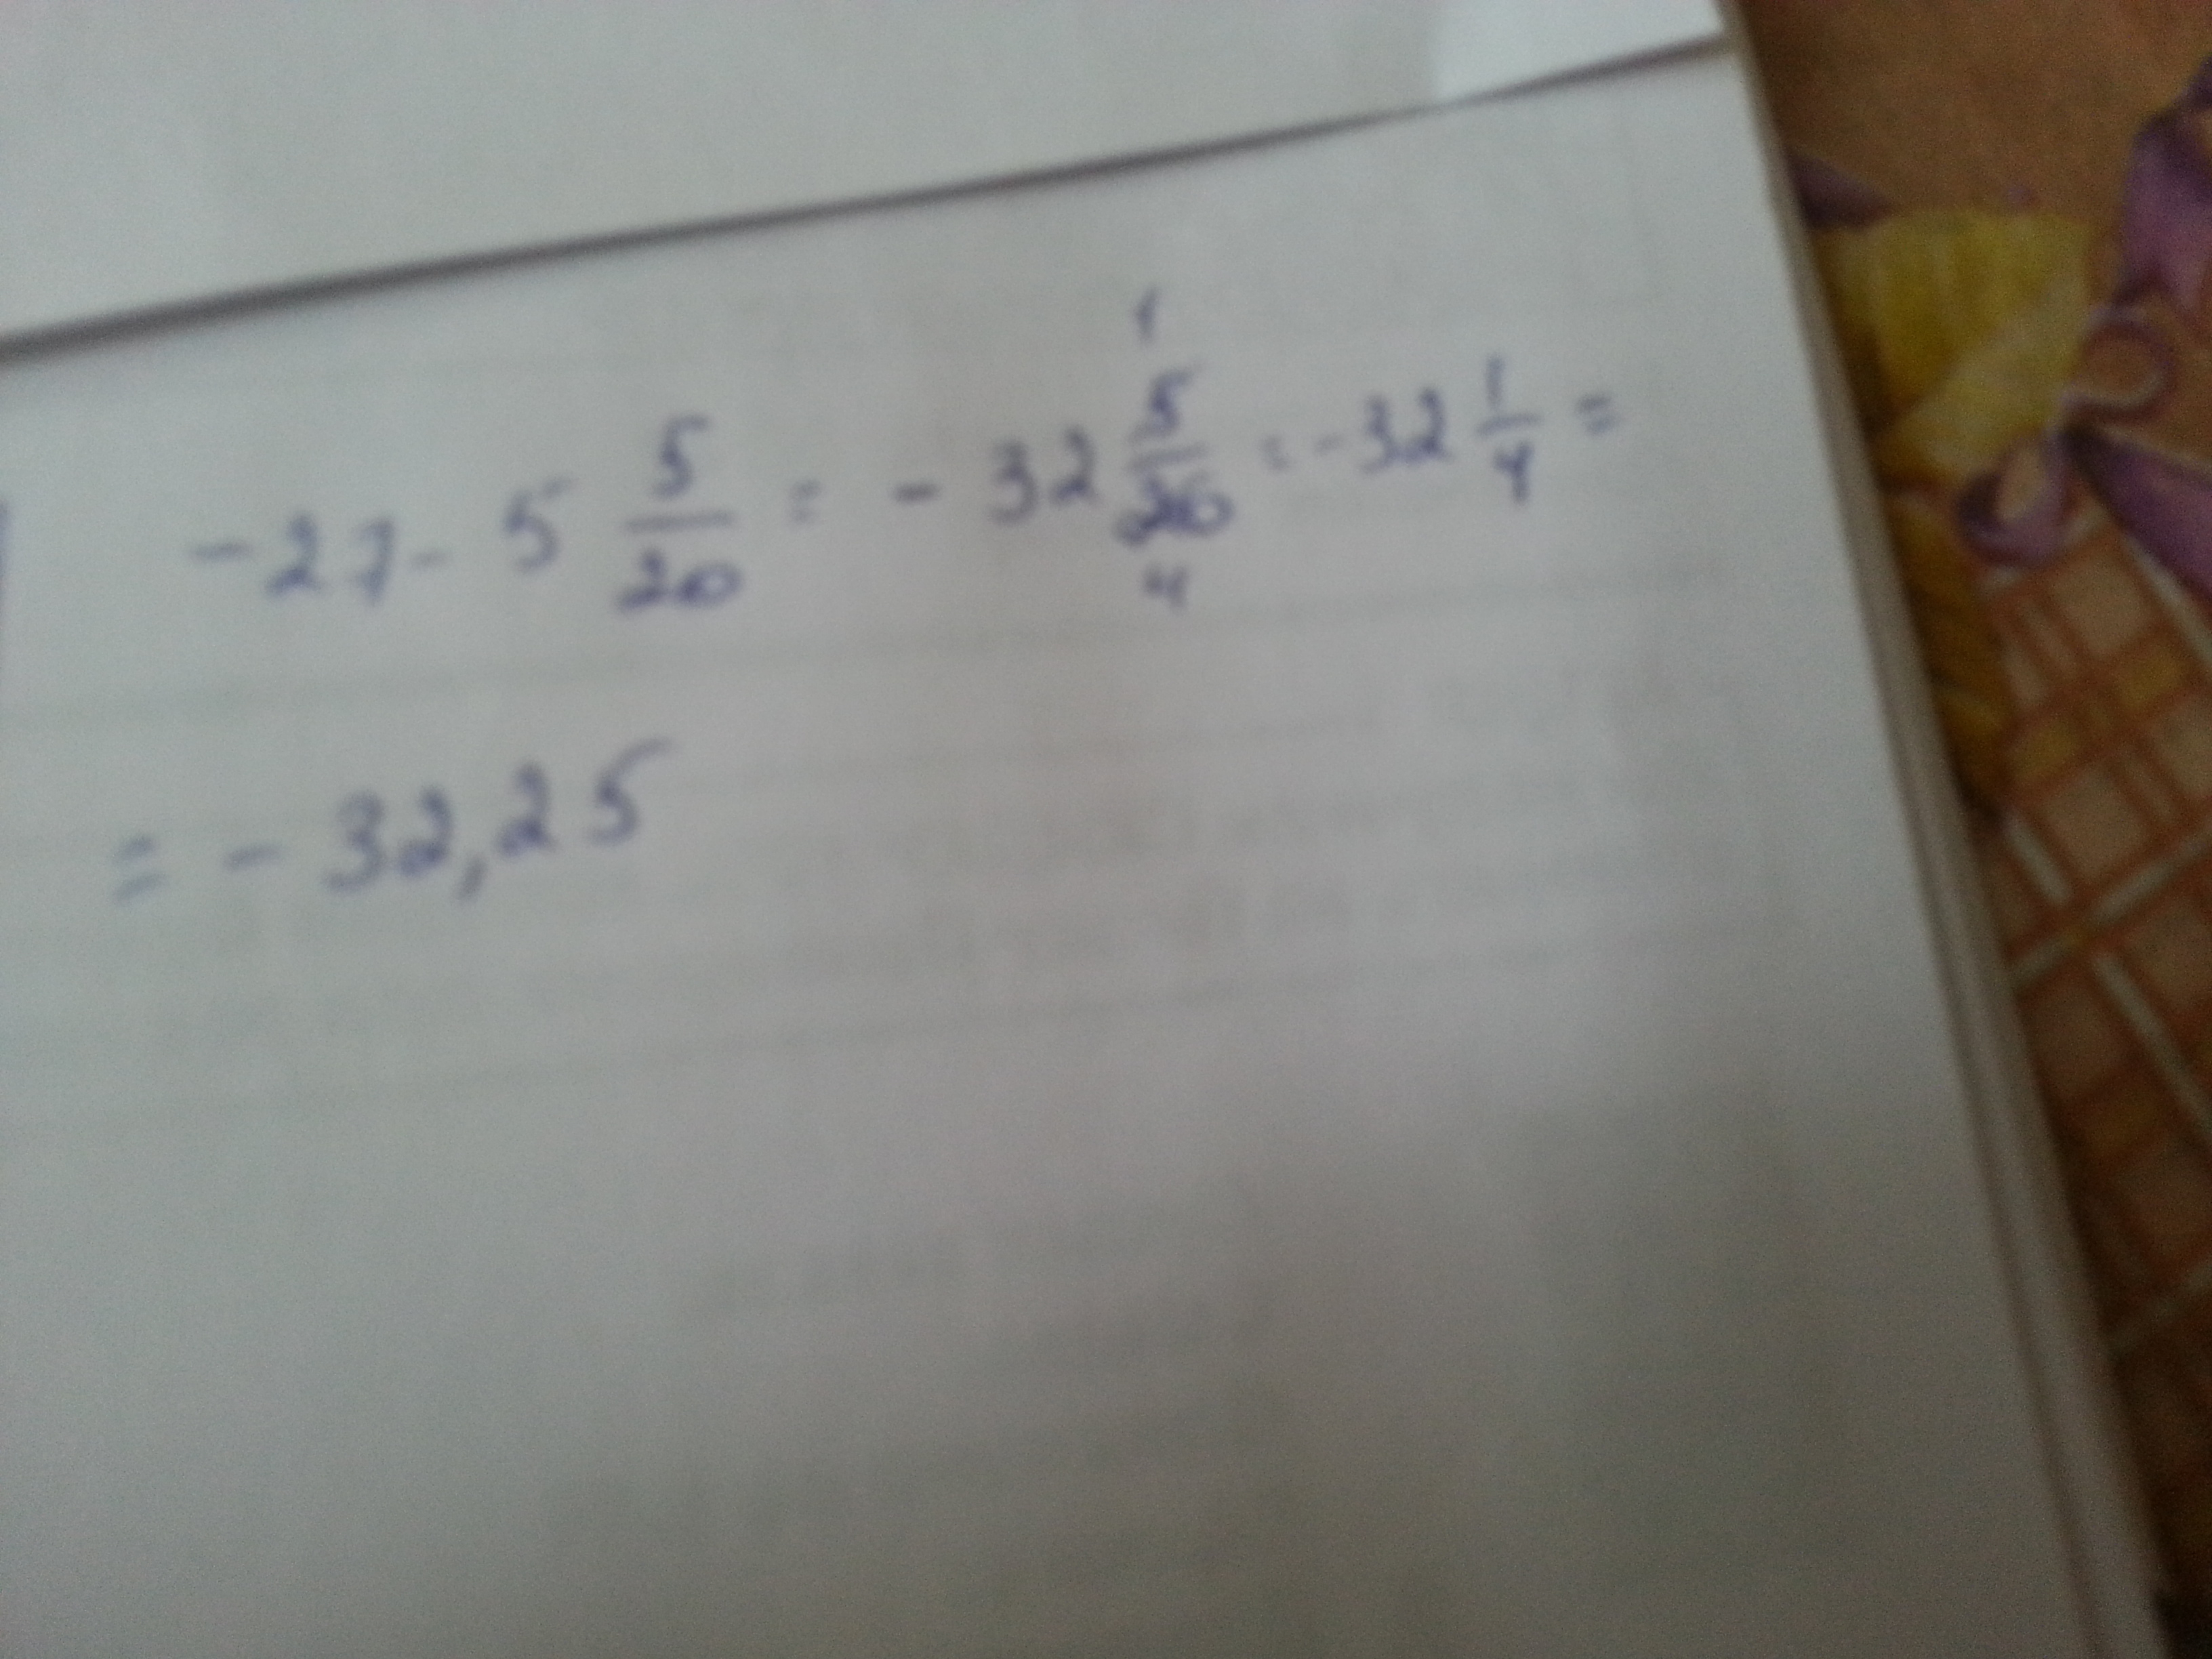 -27-5 5/20 = -32 5/20 = -32 1/4 =
= -32,25